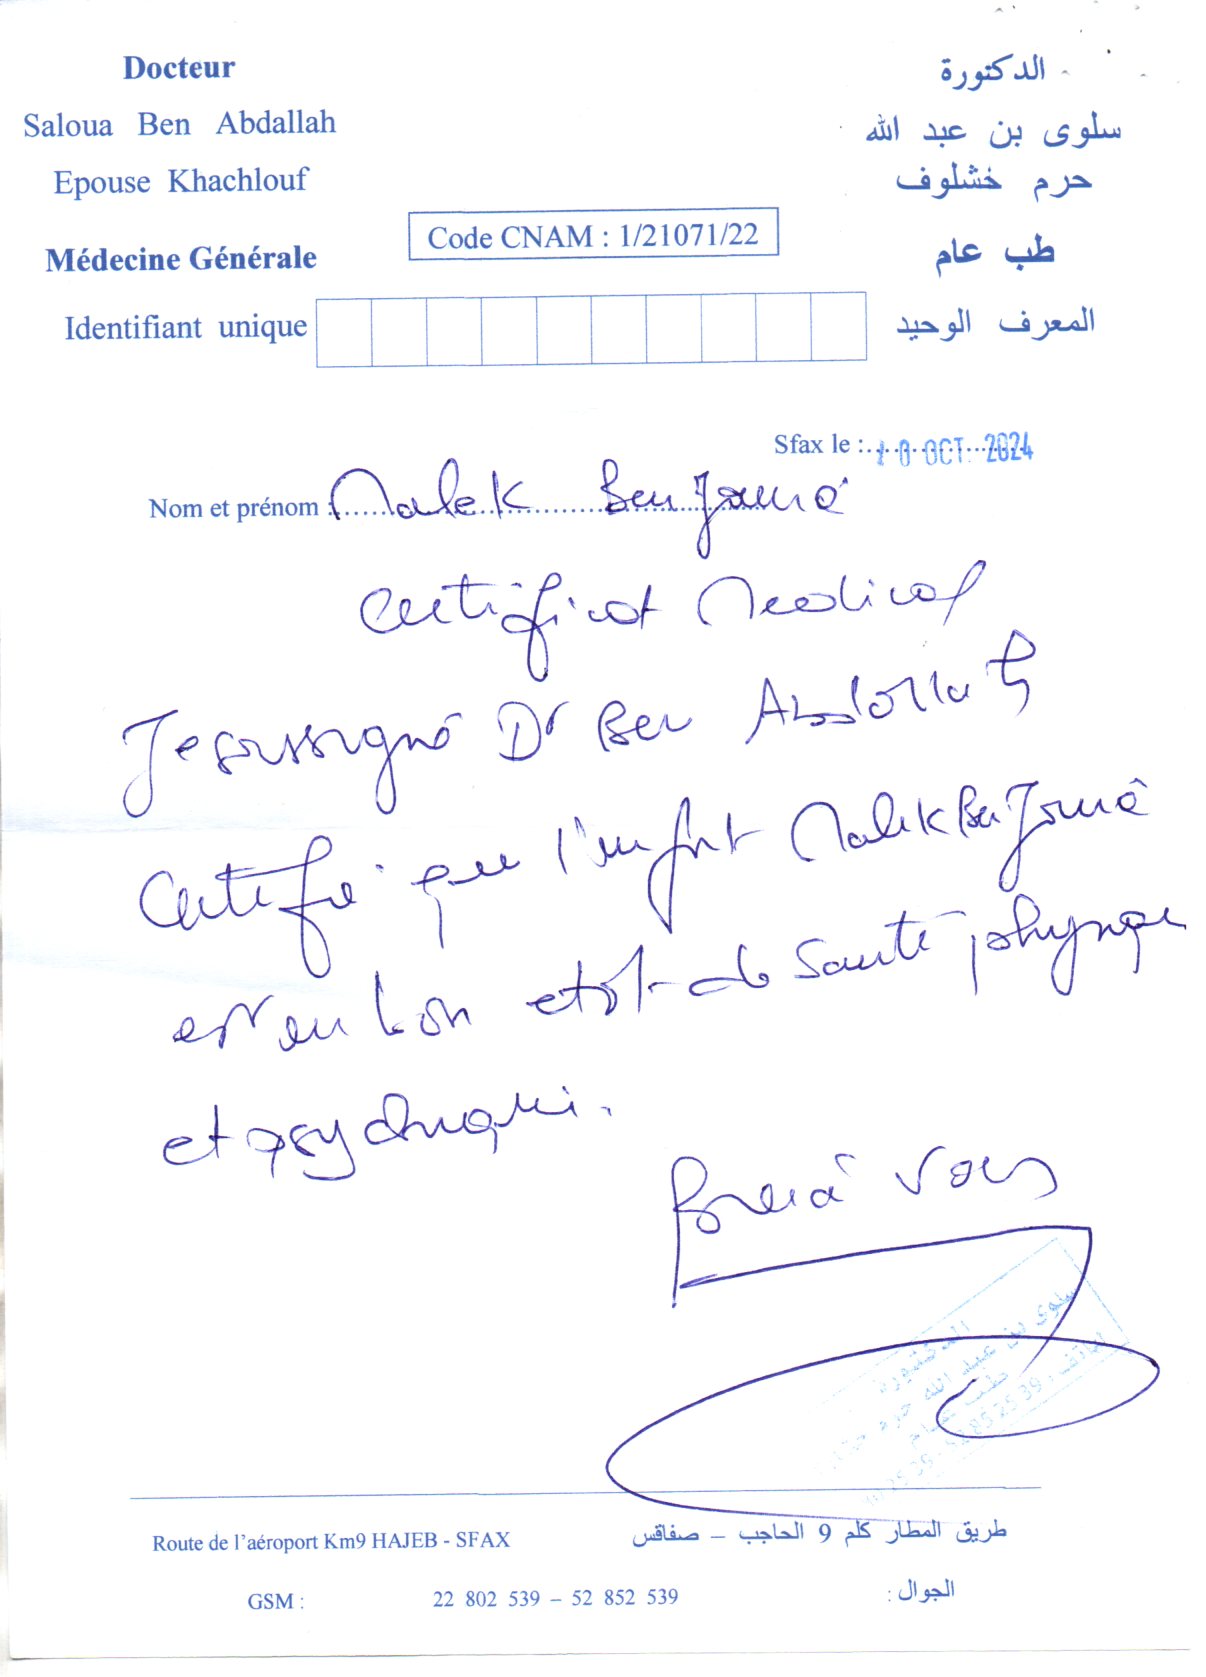 Docteur
الدكتورة
Saloua Ben Abdallah
سلوى بن عبد الله
Epouse Khachlouf
حرم خشلوف
Code CNAM : 1/21071/22
Médecine Générale
طب عام
Identifiant unique
المعرف الوحيد
Sfax le : 10 OCT. 2024
Nom et prénom : Malek Ben Jemâa
Certificat Medical
Je soussigné Dr Ben Abdallah S
Certifie que l'enfant Malek Ben Jemâa
est en bon etat de Santé physique
et psychique.
Bien à vous
الدكتورة
سلوى بن عبد الله حرم
طب عام
الهاتف: 52 852 539
Route de l'aéroport Km9 HAJEB - SFAX
طريق المطار كلم 9 الحاجب – صفاقس
GSM : 22 802 539 – 52 852 539
الجوال :